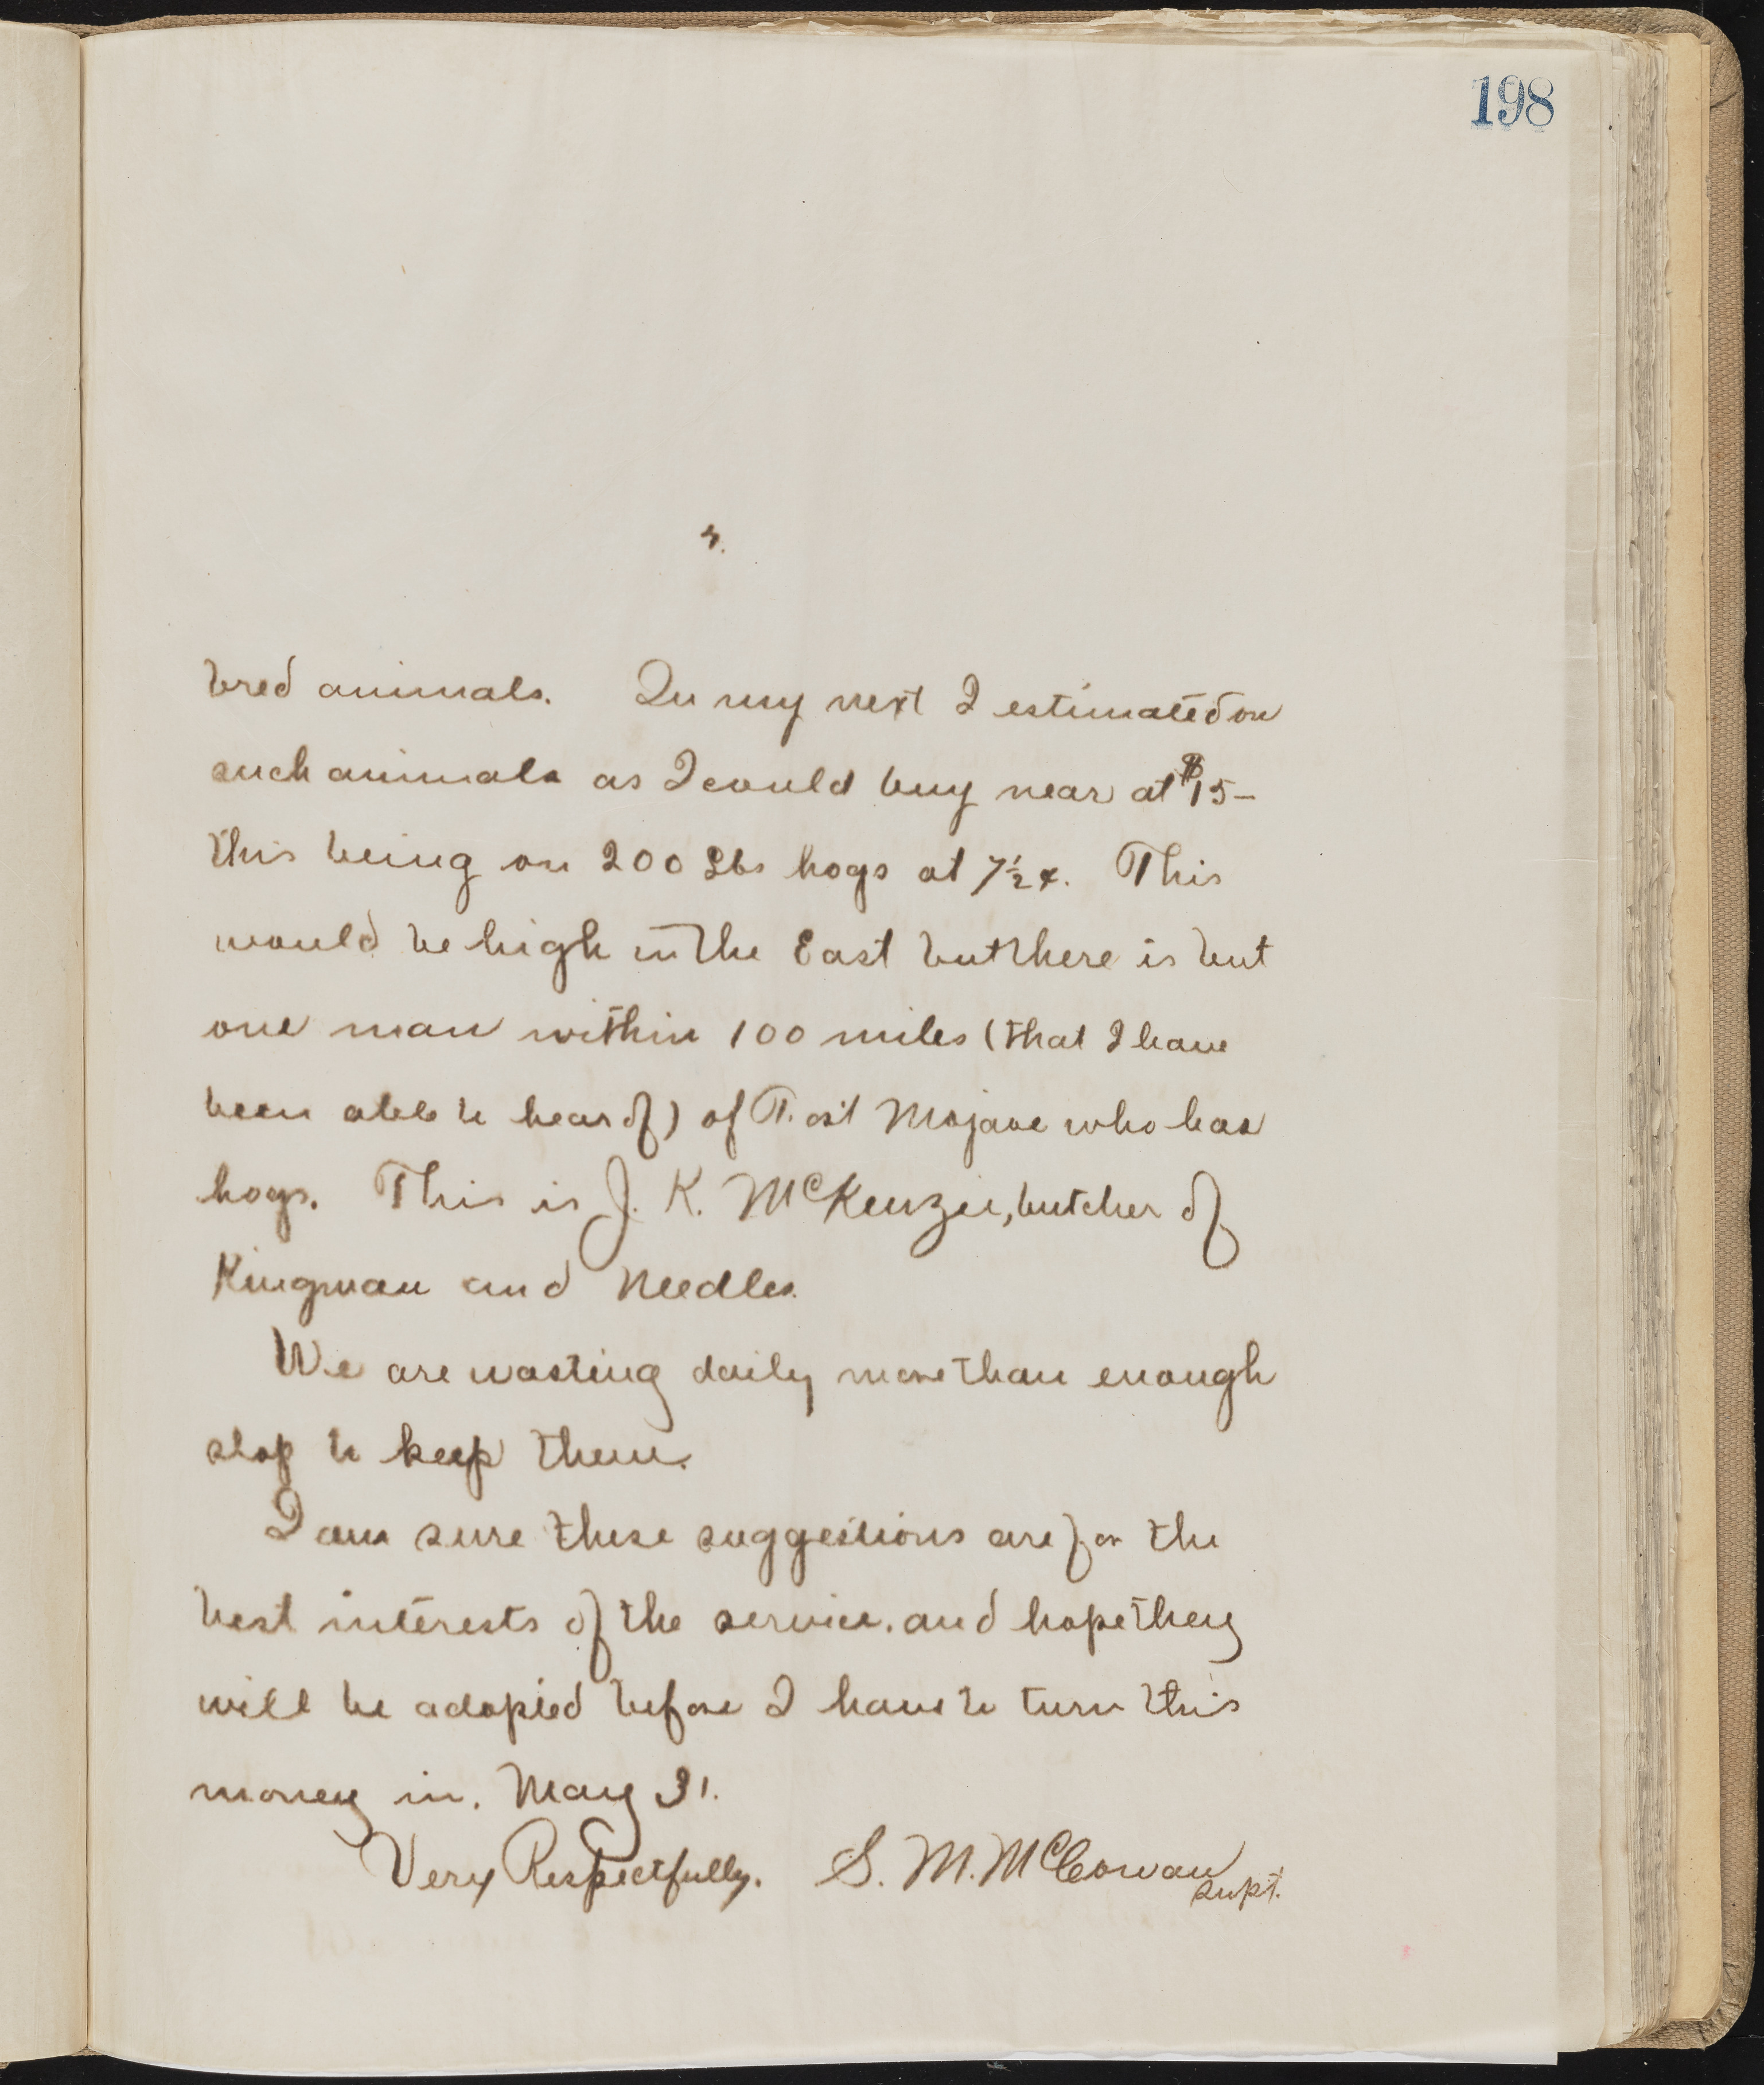 198
3.
bred animals. In my next I estimated on
such animals as I could buy near at $15-
this being on 200 Lbs hogs at 7½¢. This
would be high in the East but there is but
one man within 100 miles (that I have
been able to hear of) of Fort Mojave who has
hogs. This is J. K. McKenzie, butcher of
Kingman and Needles.
We are wasting daily more than enough
slop to keep them.
I am sure these suggestions are for the
best interests of the service, and hope they
will be adopted before I have to turn this
money in. May 31.
Very Respectfully. S. M. McCowan
Supt.